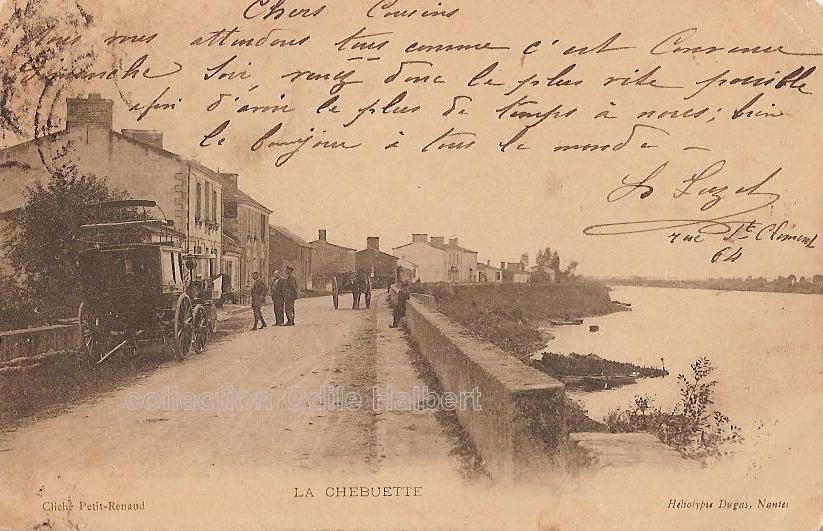 Chers Cousins
Nous vous attendons tous comme c'est convenu
Dimanche Soir, venez donc le plus vite possible
afin d'avoir le plus de temps à nous; bien
le bonjour à tous le monde -
rue St Clément
64
collection Odile Halbert
LA CHEBUETTE
Cliché Petit-Renaud
Héliotypie Dugas, Nantes